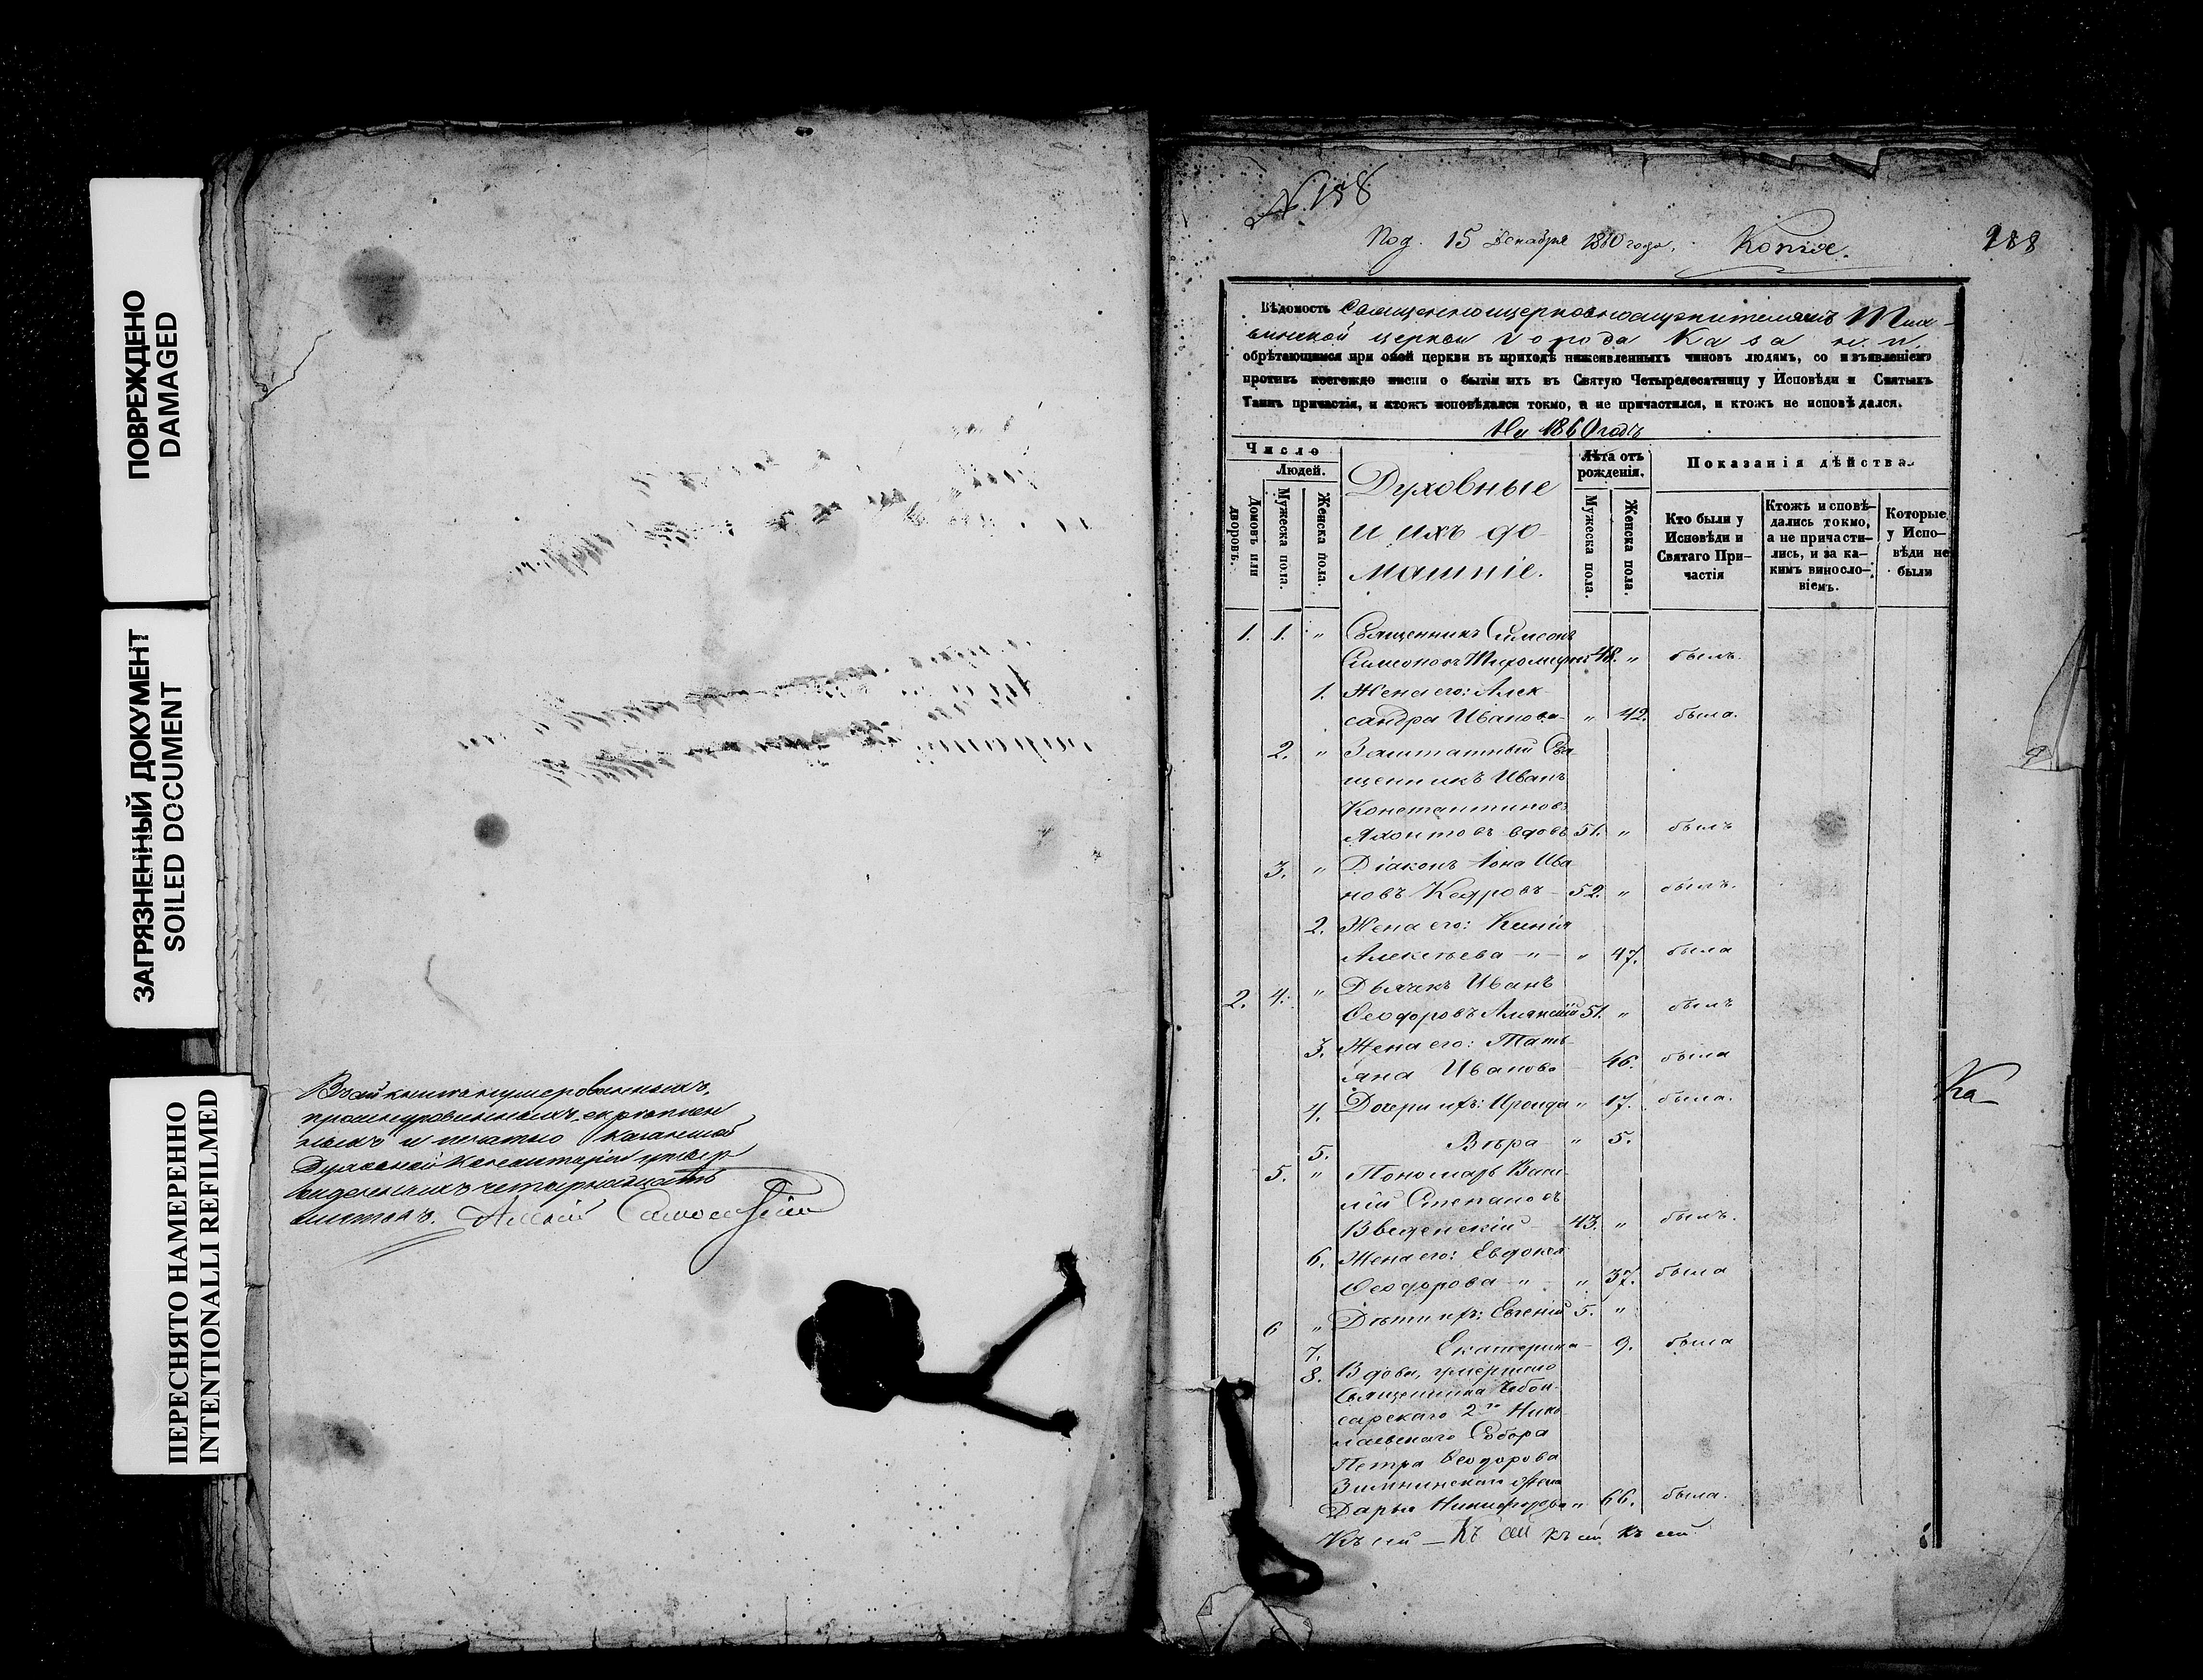 ПОВРЕЖДЕНО
DAMAGED
ЗАГРЯЗНЕННЫЙ ДОКУМЕНТ
SOILED DOCUMENT
ПЕРЕСНЯТО НАМЕРЕННО
INTENTIONALLI REFILMED
нымъ и печатью Казанской
Духовной Консисторіи
четырнадцать
листовъ.
N. 158
Под. 15 Декабря 1860 года. Копія.
188
Вѣдомость священноцерковнослужителямъ Тих-
винской церкви города Каза н. и.
обрѣтающимся при оной церкви въ приходѣ нижеявленныхъ чиновъ людямъ, со изъявленіемъ
противъ коегождо имени о бытіи ихъ въ Святую Четыредесятницу у Исповѣди и Святыхъ
Таинъ причастія, и ктожъ исповѣдался токмо, а не причастился, и ктожъ не исповѣдался.
На 1860 годъ
Число
Людей.
Домовъ или дворовъ.
Мужеска пола.
Женска пола.
Духовные
и ихъ до-
машніе.
Лѣта отъ
рожденія.
Мужеска пола.
Женска пола.
Показанія дѣйства.
Кто были у
Исповѣди и
Святаго При-
частія
Ктожъ исповѣ-
дались токмо,
а не причасти-
лись, и за ка-
кимъ винosло-
віемъ.
Которые
у Испо-
вѣди не
были
1. 1. " Священникъ Симеонъ
Симеоновъ Тихомировъ 48. " былъ.
1. Жена его: Алек
сандра Иванова - " 42. была.
2. " Заштатный Свя
щенникъ Иванъ
Константиновъ
Яхонтовъ вдовъ 51. " былъ
3. " Діаконъ Іона Ива
новъ Кедровъ - 52. " былъ.
2. Жена его: Ксенія
Алексѣева - " - " 47. была
2. 4. " Дьячекъ Иванъ
Ѳеодоровъ 51. " былъ
3. Жена его: Тать-
яна Иванова 46. была
4. Дочери ихъ: Ираида " 17. была.
5. Вѣра " 5.
5. " Пономарь Васи-
лій Степановъ
Введенскій 43. " былъ.
6. Жена его: Евдокія
Ѳеодорова - " - " 37. была
6 " Дѣти ихъ: Евгеній 5. "
7. Екатерина - 9. была
8. Вдова, умершаго
Священника Чебок-
сарскаго 2го Нико
лаевскаго Собора
Петра Ѳеодорова
жена
Дарья Никифорова " 66. была.
Къ сей - Къ сей къ сей къ сей
Ка-